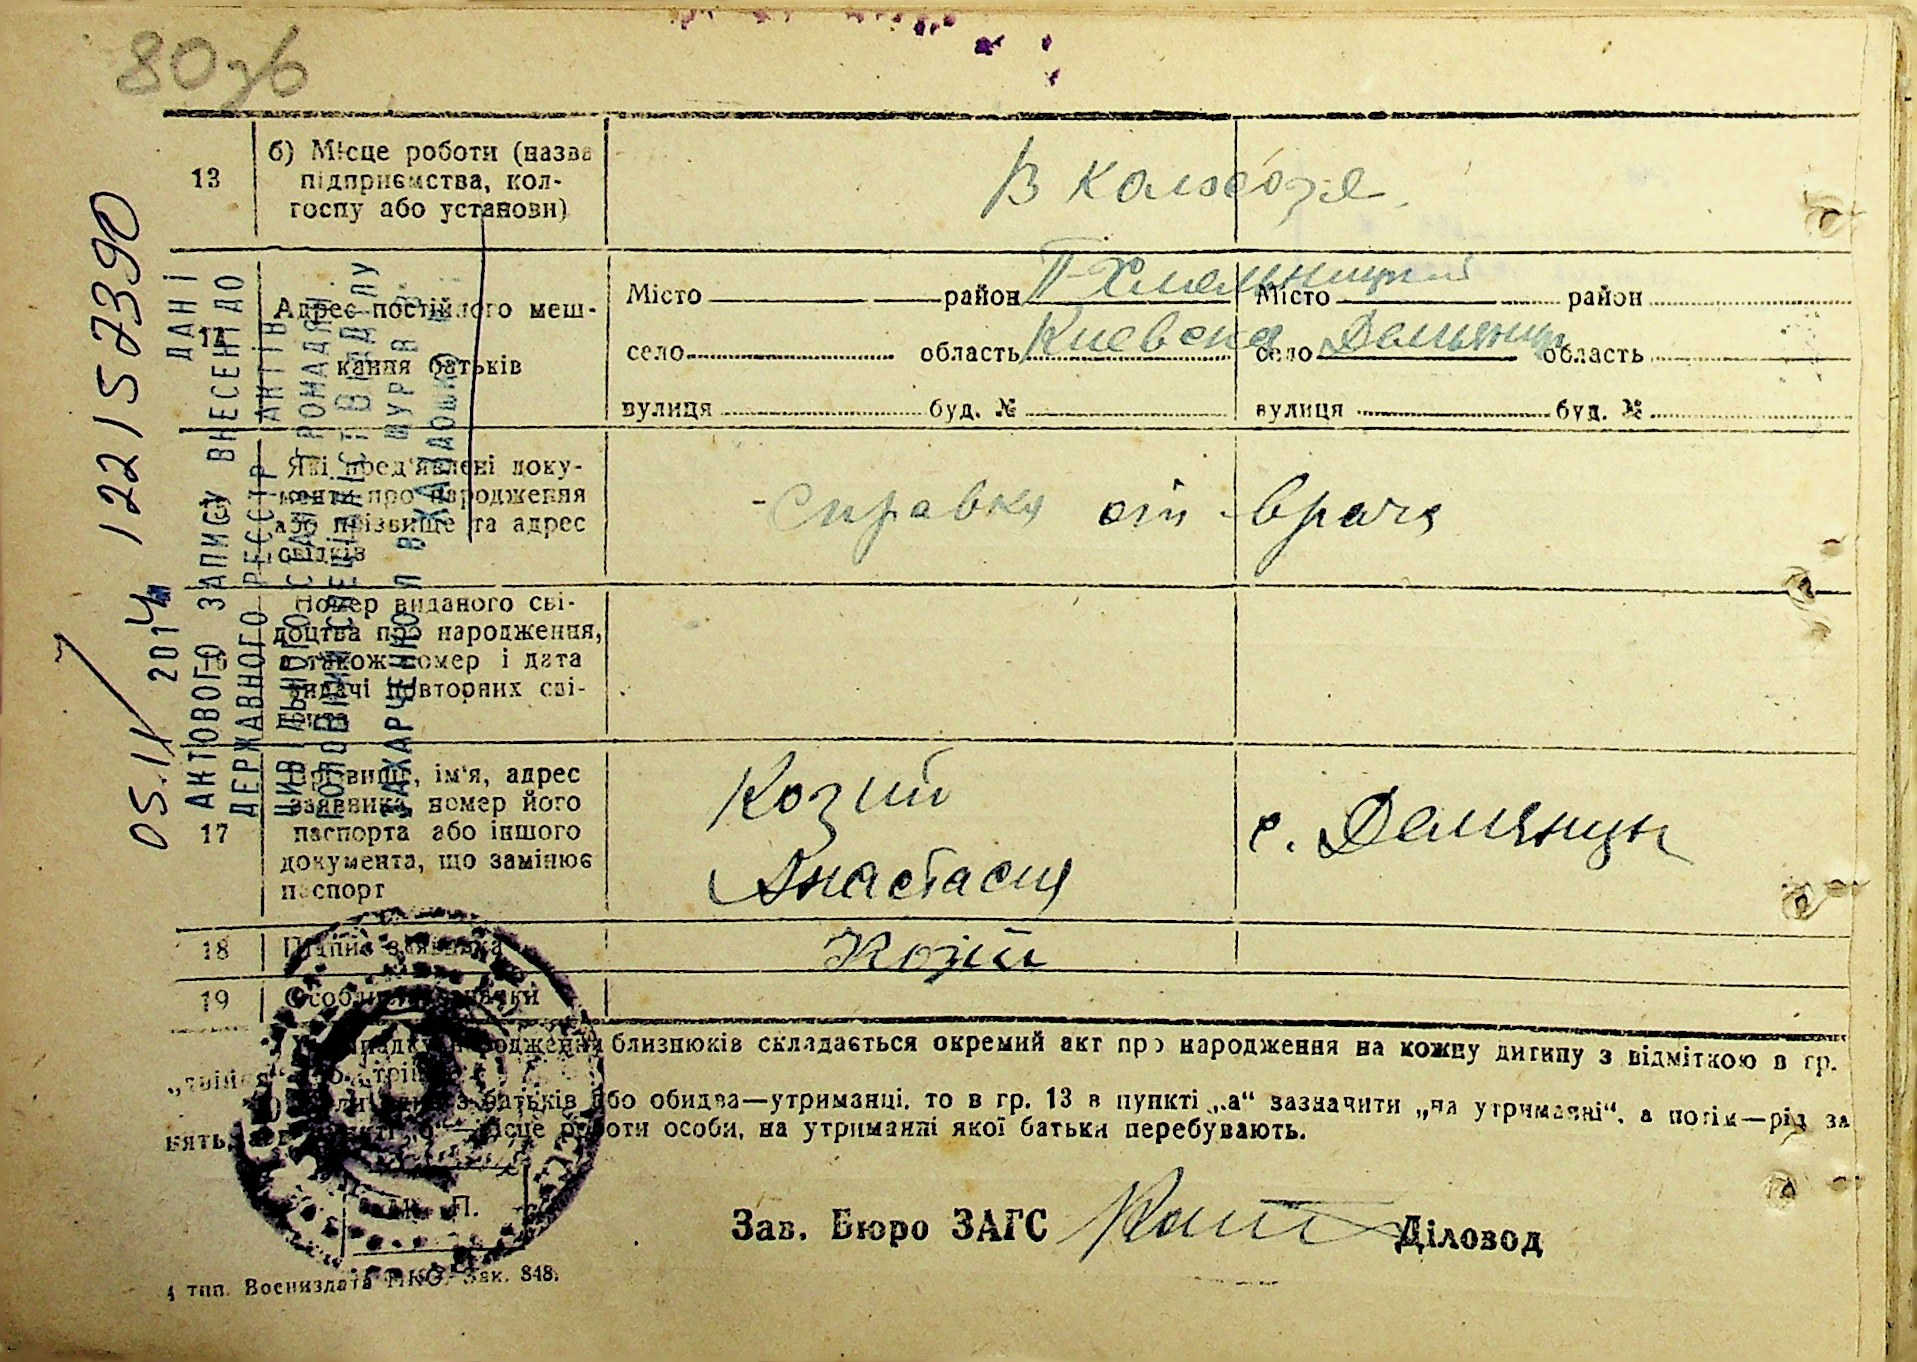 80 зв
13
б) Місце роботи (назва
підприємства, кол-
госпу або установи)
В колхозе
14
Адрес постійного меш-
кання батьків
Місто район П-Хмельницкий
село область Киевская
вулиця буд. №
Місто район
село Демянцы область
вулиця буд. №
Які пред'явлені доку-
менти про народження
або прізвище та адрес
свідків
- Справка от врача
16
Номер виданого сві-
доцтва про народження,
а також номер і дата
видачі повторних сві-
17
Прізвище, ім'я, адрес
заявника, номер його
паспорта або іншого
документа, що замінює
паспорт
Козий
Анастасия
с. Демянцы
18
Підпис заявника
Козий
19
Особливі
У випадку народження близнюків складається окремий акт про народження на кожну дитину з відміткою в гр.
„двійня“
з батьків або обидва—утриманці, то в гр. 13 в пункті „а“ зазначити „на утриманні“, а потім—рід за
нять, місце роботи особи, на утриманні якої батьки перебувають.
М. П.
Зав. Бюро ЗАГС
Діловод
4 тип. Воениздата НКО. Зак. 848.
ДАНІ
АКТОВОГО ЗАПИСУ ВНЕСЕНІ ДО
ДЕРЖАВНОГО РЕЄСТРУ АКТІВ
ЦИВІЛЬНОГО СТАНУ ГРОМАДЯН
ГОЛОВНИЙ СПЕЦІАЛІСТ ВІДДІЛУ
ЗАХАРЧЕНКО
05.11 2014
122157390